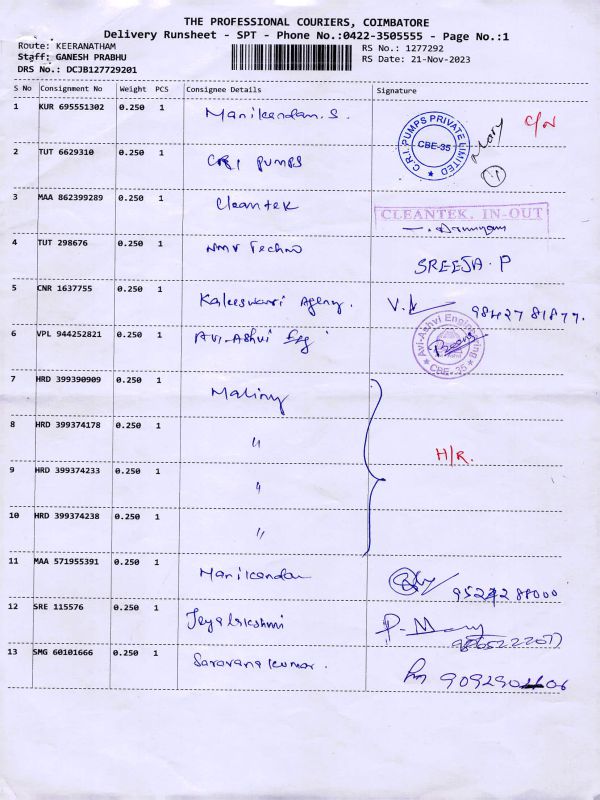 THE PROFESSIONAL COURIERS, COIMBATORE
Delivery Runsheet - SPT - Phone No.:0422-3505555 - Page No.:1
Route: KEERANATHAM RS No.: 1277292
Staff: GANESH PRABHU RS Date: 21-Nov-2023
DRS No.: DCJB127729201
S No Consignment No Weight PCS Consignee Details Signature
1 KUR 695551302 0.250 1 Manikandan. S. C.R.I. PUMPS PRIVATE LIMITED CBE-35 Mary C/N
2 TUT 6629310 0.250 1 CRI PUMPS
3 MAA 862399289 0.250 1 Cleantek CLEANTEK. IN-OUT
4 TUT 298676 0.250 1 Techno SREEJA. P
5 CNR 1637755 0.250 1 Kaleeswari Agency. 98427 81877.
6 VPL 944252821 0.250 1 Avi-Ashvi Eng Avi-Ashvi Engineering CBE-35
7 HRD 399390909 0.250 1
8 HRD 399374178 0.250 1 "
9 HRD 399374233 0.250 1 " H/R.
10 HRD 399374238 0.250 1 "
11 MAA 571955391 0.250 1 Manikandan
12 SRE 115576 0.250 1 Jeyalakshmi P. Mary
13 SMG 60101666 0.250 1 Saravanakumar.